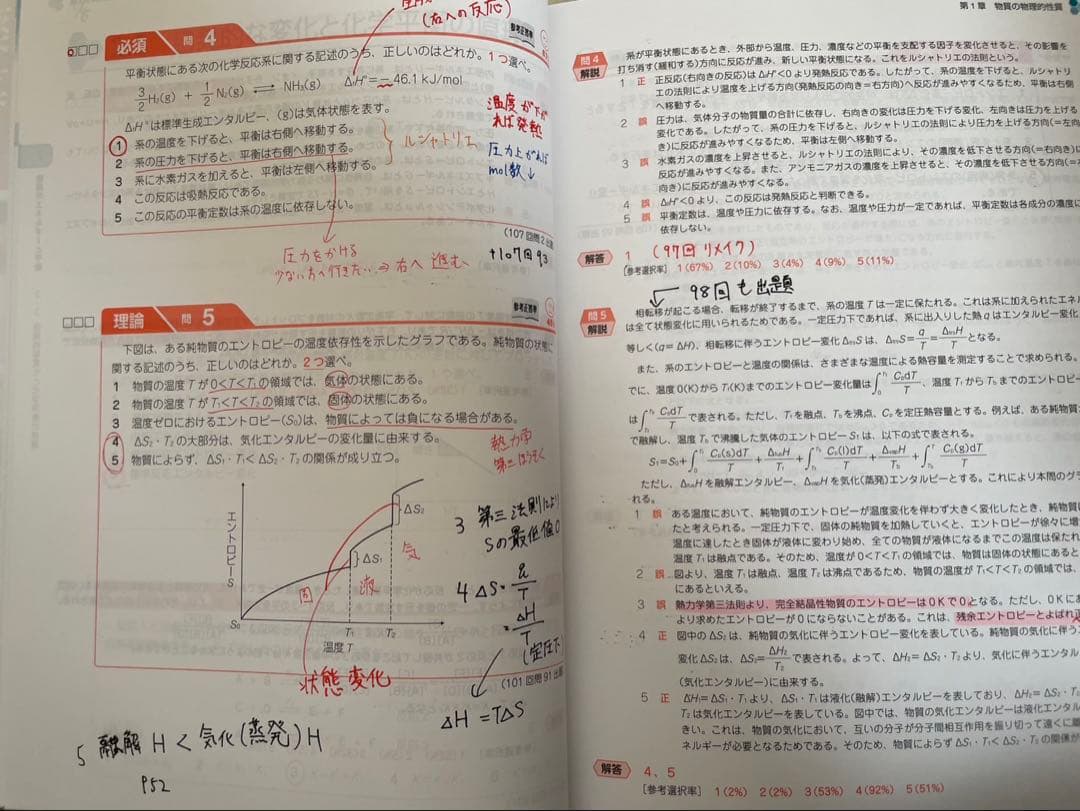 (右への反応)
必須 問4
平衡状態にある次の化学反応系に関する記述のうち、正しいのはどれか。1つ選べ。
3/2 H₂(g) + 1/2 N₂(g) ⇄ NH₃(g) ΔH°=−46.1 kJ/mol
ΔH°は標準生成エンタルピー、(g)は気体状態を表す。
1 系の温度を下げると、平衡は右側へ移動する。
2 系の圧力を下げると、平衡は右側へ移動する。
3 系に水素ガスを加えると、平衡は左側へ移動する。
4 この反応は吸熱反応である。
5 この反応の平衡定数は系の温度に依存しない。
ルシャトリエ
温度が下が
れば発熱
圧力上がれば
mol数↓
(107回問2出
圧力をかける
少ない方へ行きたい⇒右へ進む
107回93
理論 問5
下図は、ある純物質のエントロピーの温度依存性を示したグラフである。純物質の状態に
関する記述のうち、正しいのはどれか。2つ選べ。
1 物質の温度Tが0<T<T₁の領域では、気体の状態にある。
2 物質の温度TがT₁<T<T₂の領域では、固体の状態にある。
3 温度ゼロにおけるエントロピー(S₀)は、物質によっては負になる場合がある。
4 ΔS₂・T₂の大部分は、気化エンタルピーの変化量に由来する。
5 物質によらず、ΔS₁・T₁<ΔS₂・T₂の関係が成り立つ。
熱力学
エントロピーS
ΔS₂
ΔS₁
固
液
気
S₀
T₁
T₂
温度T
状態変化
3 第三法則により
Sの最低値0
4 ΔS=q/T
=ΔH/T
(定圧下)
ΔH=TΔS
(101回問91出
5 融解H<気化(蒸発)H
P52
第1章 物質の物理的性質
問4 解説
系が平衡状態にあるとき、外部から温度、圧力、濃度などの平衡を支配する因子を変化させると、その影響を
打ち消す(緩和する)方向に反応が進み、新しい平衡状態になる。これをルシャトリエの法則という。
1 正 正反応(右向きの反応)はΔH°<0より発熱反応である。したがって、系の温度を下げると、ルシャトリ
エの法則により温度を上げる方向(発熱反応の向き=右方向)へ反応が進みやすくなるため、平衡は右側
へ移動する。
2 誤 圧力は、気体分子の物質量の合計に依存し、右向きの変化は圧力を下げる変化、左向きは圧力を上げる
変化である。したがって、系の圧力を下げると、ルシャトリエの法則により圧力を上げる方向(=左方
向)に反応が進みやすくなるため、平衡は左側へ移動する。
3 誤 水素ガスの濃度を上昇させると、ルシャトリエの法則により、その濃度を低下させる方向(=右向き)に
反応が進みやすくなる。また、アンモニアガスの濃度を上昇させると、その濃度を低下させる方向(=左
向き)に反応が進みやすくなる。
4 誤 ΔH°<0より、この反応は発熱反応と判断できる。
5 誤 平衡定数は、温度や圧力に依存する。なお、温度や圧力が一定であれば、平衡定数は各成分の濃度に
依存しない。
解答 1 (97回リメイク)
[参考選択率] 1(67%) 2(10%) 3(4%) 4(9%) 5(11%)
98回も出題
問5 解説
相転移が起こる場合、転移が終了するまで、系の温度Tは一定に保たれる。これは系に加えられたエネル
は全て状態変化に用いられるためである。一定圧力下であれば、系に出入りした熱qはエンタルピー変化
等しく(q=ΔH)、相転移に伴うエントロピー変化ΔtrsSは、ΔtrsS=q/T=ΔtrsH/Tとなる。
また、系のエントロピーと温度の関係は、さまざまな温度による熱容量を測定することで求められる。
でに、温度0(K)からT₁(K)までのエントロピー変化量は∫CpdT/T、温度T₁からTbまでのエントロピー
は∫CpdT/Tで表される。ただし、Tfを融点、Tbを沸点、Cpを定圧熱容量とする。例えば、ある純物質
で融解し、温度Tbで沸騰した気体のエントロピーS₁は、以下の式で表される。
S₁=S₀+∫Cp(s)dT/T+ΔfusH/Tf+∫Cp(l)dT/T+ΔvapH/Tb+∫Cp(g)dT/T
ただし、ΔfusHを融解エンタルピー、ΔvapHを気化(蒸発)エンタルピーとする。これにより本問のグラ
れる。
1 誤 ある温度において、純物質のエントロピーが温度変化を伴わず大きく変化したとき、純物質
たと考えられる。一定圧力下で、固体の純物質を加熱していくと、エントロピーが徐々に増
温度に達したとき固体が液体に変わり始め、全ての物質が液体になるまでこの温度は保たれ
温度T₁は融点である。そのため、温度が0<T<T₁の領域では、物質は固体の状態にあると
2 誤 図より、温度T₁は融点、温度T₂は沸点であるため、物質の温度がT₁<T<T₂の領域では、
にあるといえる。
3 誤 熱力学第三法則より、完全結晶性物質のエントロピーは0Kで0となる。ただし、0Kに
より求めたエントロピーが0にならないことがある。これは、残余エントロピーとよばれ
4 正 図中のΔS₂は、純物質の気化に伴うエントロピー変化を表している。純物質の気化に伴う
変化ΔS₂は、ΔS₂=ΔH₂/T₂で表される。よって、ΔH₂=ΔS₂・T₂より、気化に伴うエンタル
(気化エンタルピー)に由来する。
5 正 ΔH₁=ΔS₁・T₁より、ΔS₁・T₁は液化(融解)エンタルピーを表しており、ΔH₂=ΔS₂・T
T₂は気化エンタルピーを表している。図中では、物質の気化エンタルピーは液化エンタル
きい。これは、物質の気化において、互いの分子が分子間相互作用を振り切って遠くに離
ネルギーが必要となるためである。そのため、物質によらずΔS₁・T₁<ΔS₂・T₂の関係が
解答 4、5
[参考選択率] 1(2%) 2(2%) 3(53%) 4(92%) 5(51%)